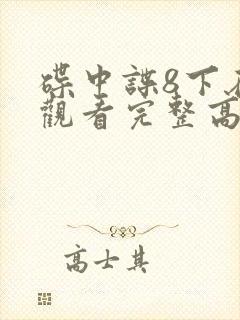 碟中諜8下
觀看完整高
高士其